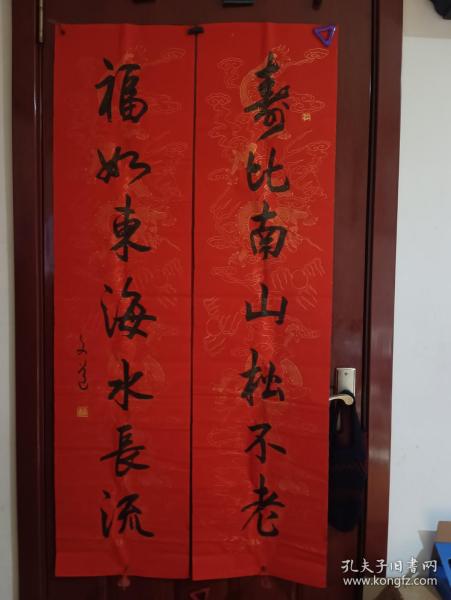 寿比南山松不老
福如東海水長流
孔夫子旧书网
www.kongfz.com